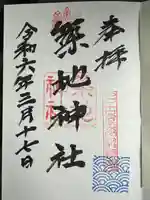 奉拝
築地神社
令和六年三月十七日